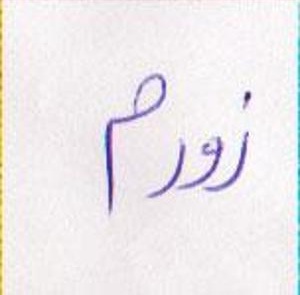 زورم